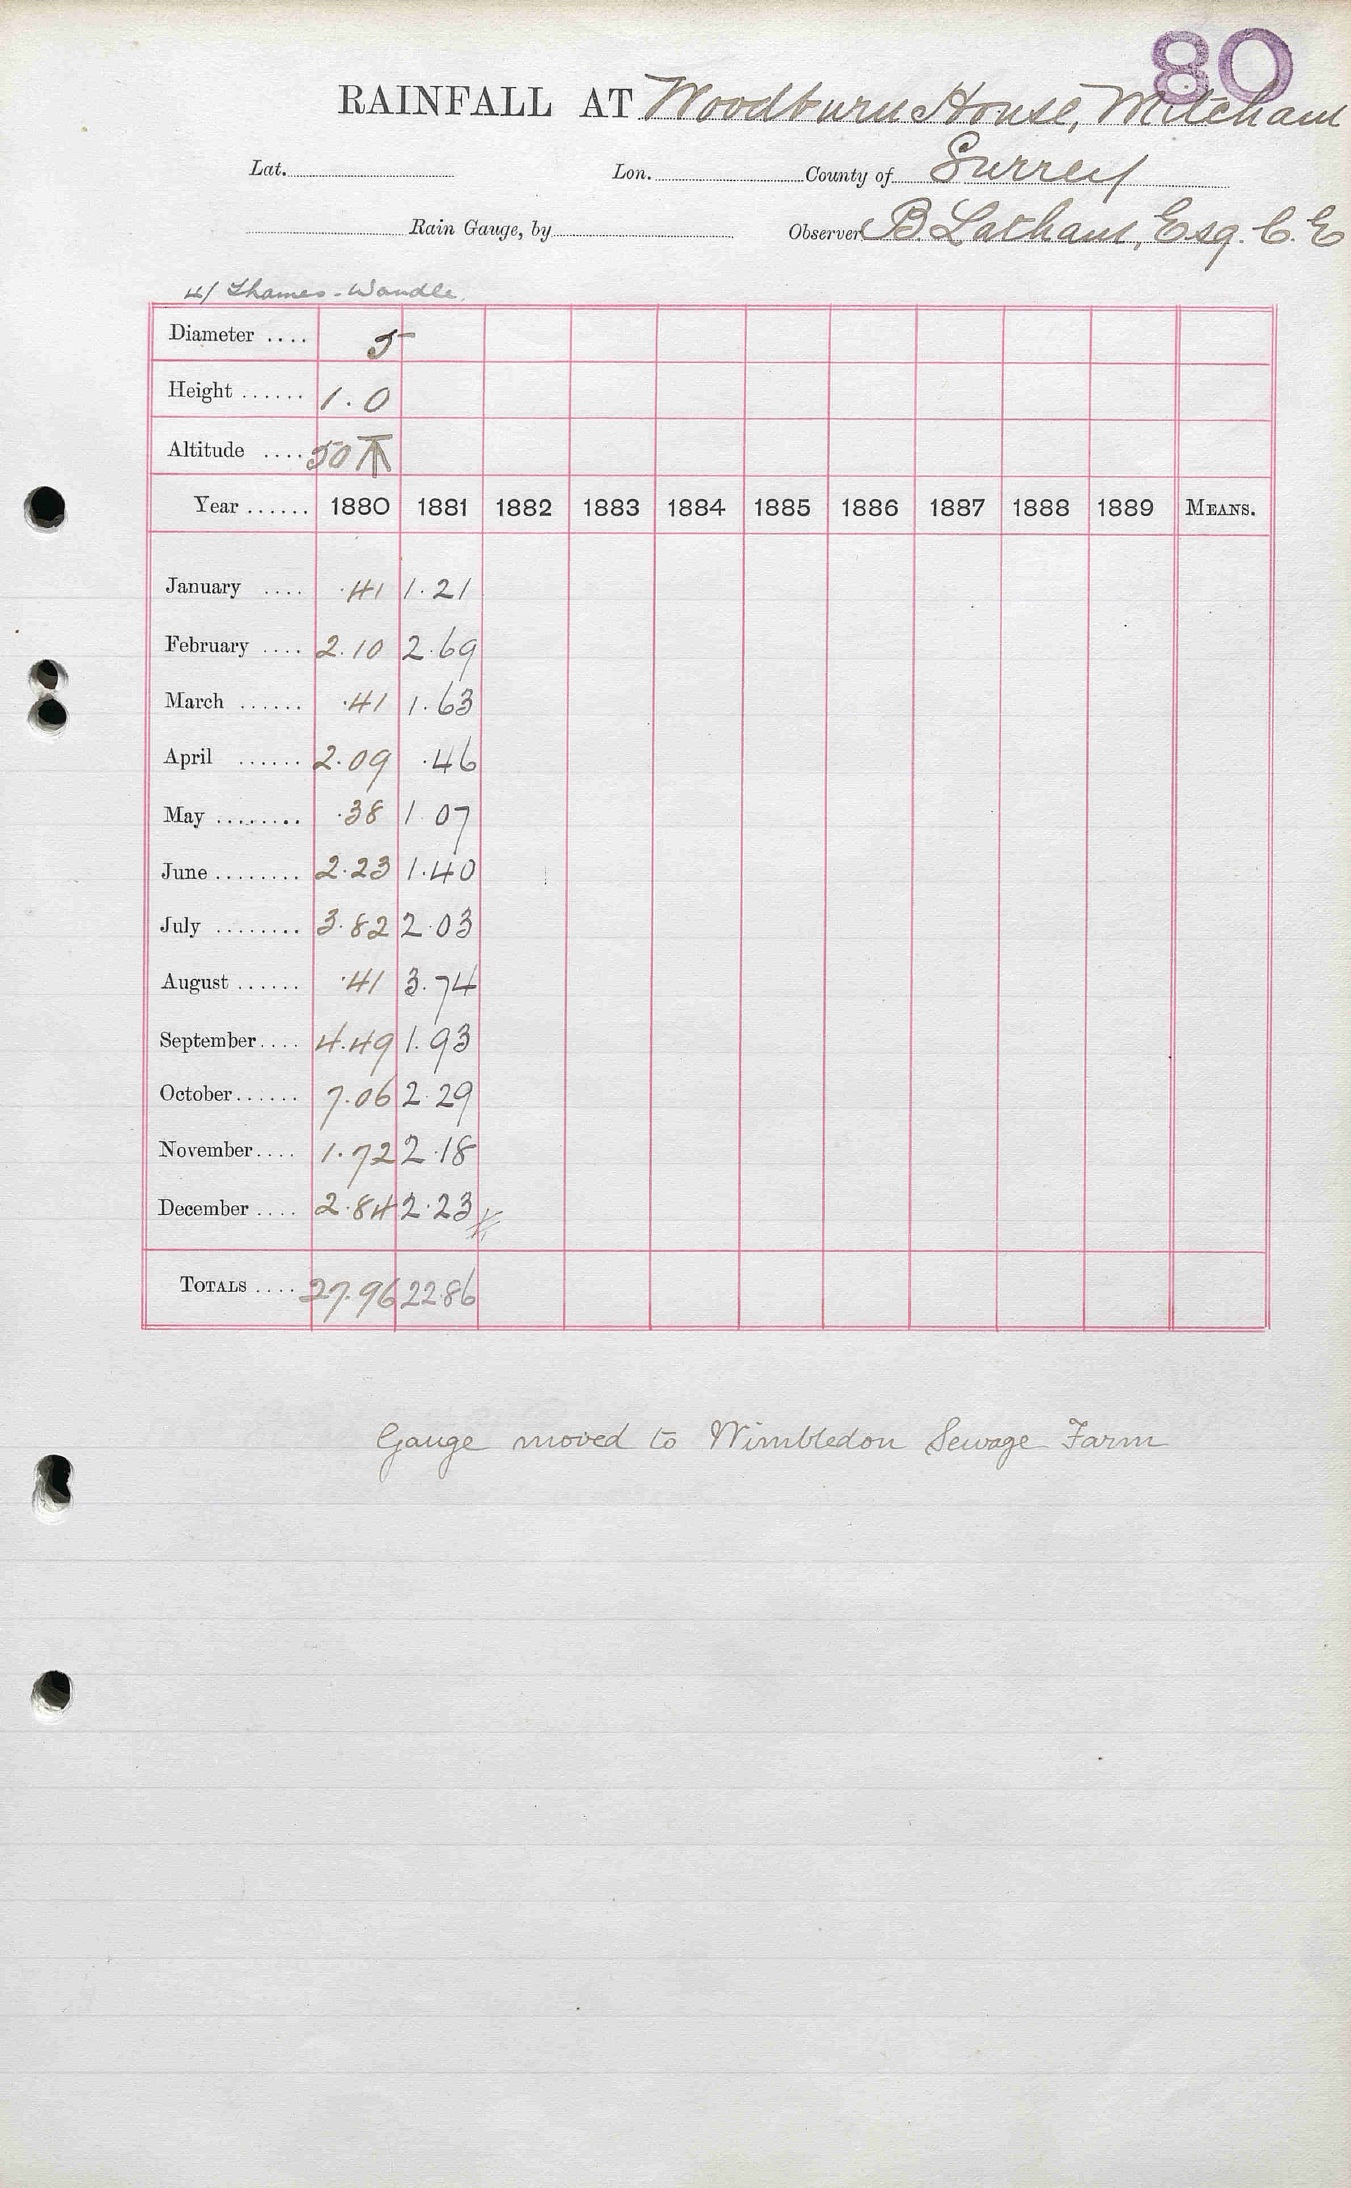 80
RAINFALL AT Woodburn House, Mitcham
Lat. Lon. County of Surrey
Rain Gauge, by Observer B. Latham, Esq. C.E
4/ Thames-Wandle.
Diameter .... 5
Height ...... 1.0
Altitude .... 50
Year ...... 1880 1881 1882 1883 1884 1885 1886 1887 1888 1889 MEANS.
January .... .41 1.21
February .... 2.10 2.69
March ...... .41 1.63
April ...... 2.09 .46
May ........ .38 1.07
June ........ 2.23 1.40
July ........ 3.82 2.03
August ...... .41 3.74
September .... 4.49 1.93
October ...... 7.06 2.29
November .... 1.72 2.18
December .... 2.84 2.23
TOTALS .... 27.96 22.86
Gauge moved to Wimbledon Sewage Farm